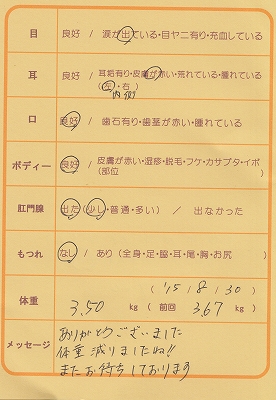 目 良好 / 涙が出ている・目ヤニ有り・充血している
耳 良好 / 耳垢有り・皮膚が赤い・荒れている・腫れている
(左・右)
内側
口 良好 / 歯石有り・歯茎が赤い・腫れている
ボディー 良好 / 皮膚が赤い・湿疹・脱毛・フケ・カサブタ・イボ
(部位 )
肛門腺 出た (少し・普通・多い) / 出なかった
もつれ なし / あり (全身・足・脇・耳・尾・胸・お尻)
( '15 / 8 / 30 )
体重 3.50 kg ( 前回 3.67 kg )
メッセージ ありがとうございました
体重減りましたね!!
またお待ちしております